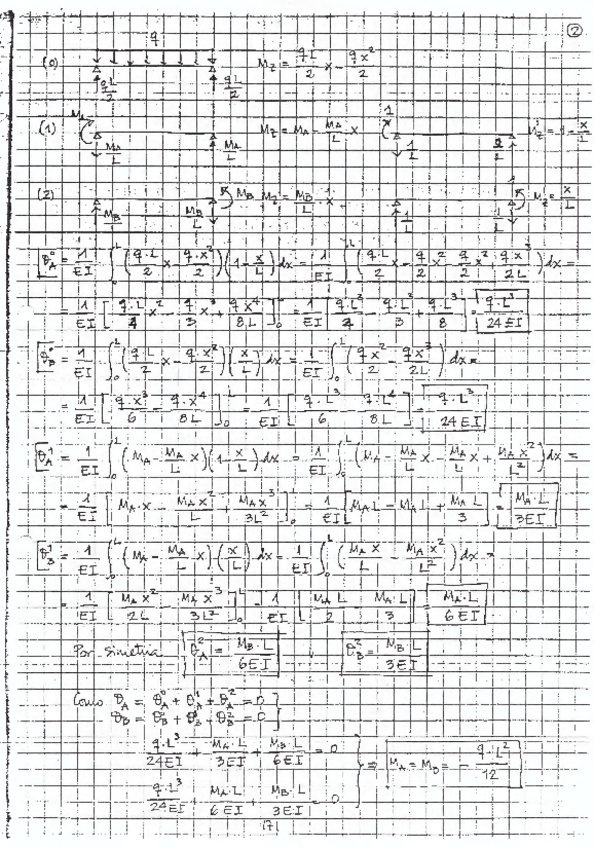 ②
q
(0) qL/2 qL/2 M_z = qL/2 x - qx²/2
(1) M_A M_A/L M_A/L M_z = M_A - M_A/L x 1 1/L 1/L M_z' = 1 - x/L
(2) M_B/L M_B/L M_B M_z = M_B/L · x 1/L 1/L 1 M_z' = x/L
θ_A⁰ = 1/EI ∫₀ᴸ (q·L/2 x - q·x²/2)(1 - x/L) dx = 1/EI ∫₀ᴸ (q·L/2 x - q/2 x² - q/2 x² + q x³/2L) dx =
= 1/EI [q·L/4 x² - q/3 x³ + q x⁴/8L]₀ᴸ = 1/EI [qL³/4 - q·L³/3 + q·L³/8] = q·L³/24EI
θ_B⁰ = 1/EI ∫₀ᴸ (q·L/2 x - q x²/2)(x/L) dx = 1/EI ∫₀ᴸ (q x²/2 - q x³/2L) dx =
= 1/EI [q·x³/6 - q·x⁴/8L]₀ᴸ = 1/EI [q·L³/6 - q·L⁴/8L] = q·L³/24EI
θ_A¹ = 1/EI ∫₀ᴸ (M_A - M_A/L x)(1 - x/L) dx = 1/EI ∫₀ᴸ (M_A - M_A/L x - M_A/L x + M_A x²/L²) dx =
= 1/EI [M_A·x - M_A x²/L + M_A x³/3L²]₀ᴸ = 1/EI [M_A L - M_A L + M_A L/3] = M_A·L/3EI
θ_B¹ = 1/EI ∫₀ᴸ (M_A - M_A/L x)(x/L) dx = 1/EI ∫₀ᴸ (M_A x/L - M_A x²/L²) dx =
= 1/EI [M_A x²/2L - M_A x³/3L²]₀ᴸ = 1/EI [M_A L/2 - M_A L/3] = M_A·L/6EI
Por simetria θ_A² = M_B·L/6EI θ_B² = M_B·L/3EI
Como θ_A = θ_A⁰ + θ_A¹ + θ_A² = 0
θ_B = θ_B⁰ + θ_B¹ + θ_B² = 0
q·L³/24EI + M_A·L/3EI + M_B·L/6EI = 0 ⇒ M_A = M_B = - q·L²/12
q·L³/24EI + M_A·L/6EI + M_B·L/3EI = 0
171